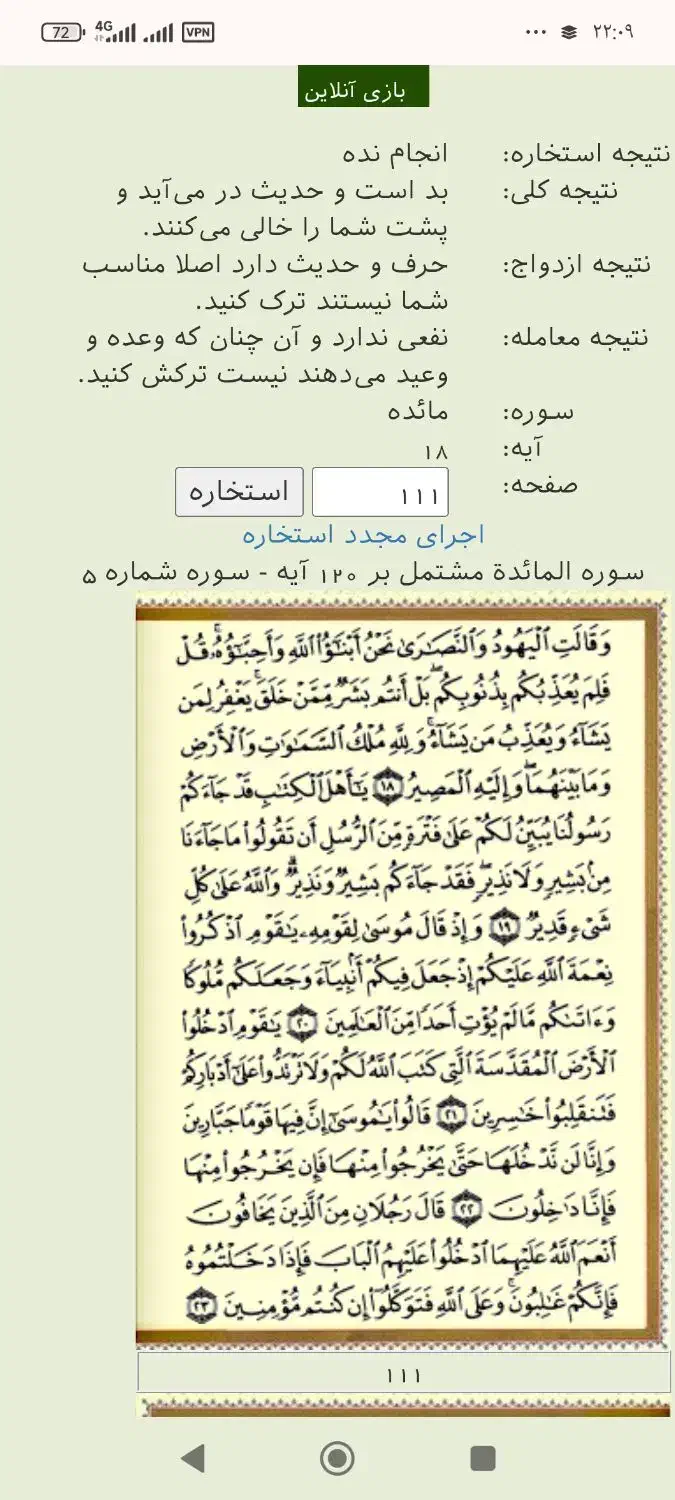 72 4G VPN ... ۲۲:۰۹
بازی آنلاین
نتیجه استخاره: انجام نده
نتیجه کلی: بد است و حدیث در می‌آید و
پشت شما را خالی می‌کنند.
نتیجه ازدواج: حرف و حدیث دارد اصلا مناسب
شما نیستند ترک کنید.
نتیجه معامله: نفعی ندارد و آن چنان که وعده و
وعید می‌دهند نیست ترکش کنید.
سوره: مائده
آیه: ۱۸
صفحه: ۱۱۱ استخاره
اجرای مجدد استخاره
سوره المائدة مشتمل بر ۱۲۰ آیه - سوره شماره ۵
وَقَالَتِ الْيَهُودُ وَالنَّصَارَىٰ نَحْنُ أَبْنَاؤُا اللَّهِ وَأَحِبَّاؤُهُ ۚ قُلْ
فَلِمَ يُعَذِّبُكُم بِذُنُوبِكُم ۖ بَلْ أَنتُم بَشَرٌ مِّمَّنْ خَلَقَ ۚ يَغْفِرُ لِمَن
يَشَاءُ وَيُعَذِّبُ مَن يَشَاءُ ۚ وَلِلَّهِ مُلْكُ السَّمَاوَاتِ وَالْأَرْضِ
وَمَا بَيْنَهُمَا ۖ وَإِلَيْهِ الْمَصِيرُ ۱۸ يَا أَهْلَ الْكِتَابِ قَدْ جَاءَكُمْ
رَسُولُنَا يُبَيِّنُ لَكُمْ عَلَىٰ فَتْرَةٍ مِّنَ الرُّسُلِ أَن تَقُولُوا مَا جَاءَنَا
مِن بَشِيرٍ وَلَا نَذِيرٍ ۖ فَقَدْ جَاءَكُم بَشِيرٌ وَنَذِيرٌ ۗ وَاللَّهُ عَلَىٰ كُلِّ
شَيْءٍ قَدِيرٌ ۱۹ وَإِذْ قَالَ مُوسَىٰ لِقَوْمِهِ يَا قَوْمِ اذْكُرُوا
نِعْمَةَ اللَّهِ عَلَيْكُمْ إِذْ جَعَلَ فِيكُمْ أَنبِيَاءَ وَجَعَلَكُم مُّلُوكًا
وَءَاتَاكُم مَّا لَمْ يُؤْتِ أَحَدًا مِّنَ الْعَالَمِينَ ۲۰ يَا قَوْمِ ادْخُلُوا
الْأَرْضَ الْمُقَدَّسَةَ الَّتِي كَتَبَ اللَّهُ لَكُمْ وَلَا تَرْتَدُّوا عَلَىٰ أَدْبَارِكُمْ
فَتَنقَلِبُوا خَاسِرِينَ ۲۱ قَالُوا يَا مُوسَىٰ إِنَّ فِيهَا قَوْمًا جَبَّارِينَ
وَإِنَّا لَن نَّدْخُلَهَا حَتَّىٰ يَخْرُجُوا مِنْهَا فَإِن يَخْرُجُوا مِنْهَا
فَإِنَّا دَاخِلُونَ ۲۲ قَالَ رَجُلَانِ مِنَ الَّذِينَ يَخَافُونَ
أَنْعَمَ اللَّهُ عَلَيْهِمَا ادْخُلُوا عَلَيْهِمُ الْبَابَ فَإِذَا دَخَلْتُمُوهُ
فَإِنَّكُمْ غَالِبُونَ ۚ وَعَلَى اللَّهِ فَتَوَكَّلُوا إِن كُنتُم مُّؤْمِنِينَ ۲۳
۱۱۱